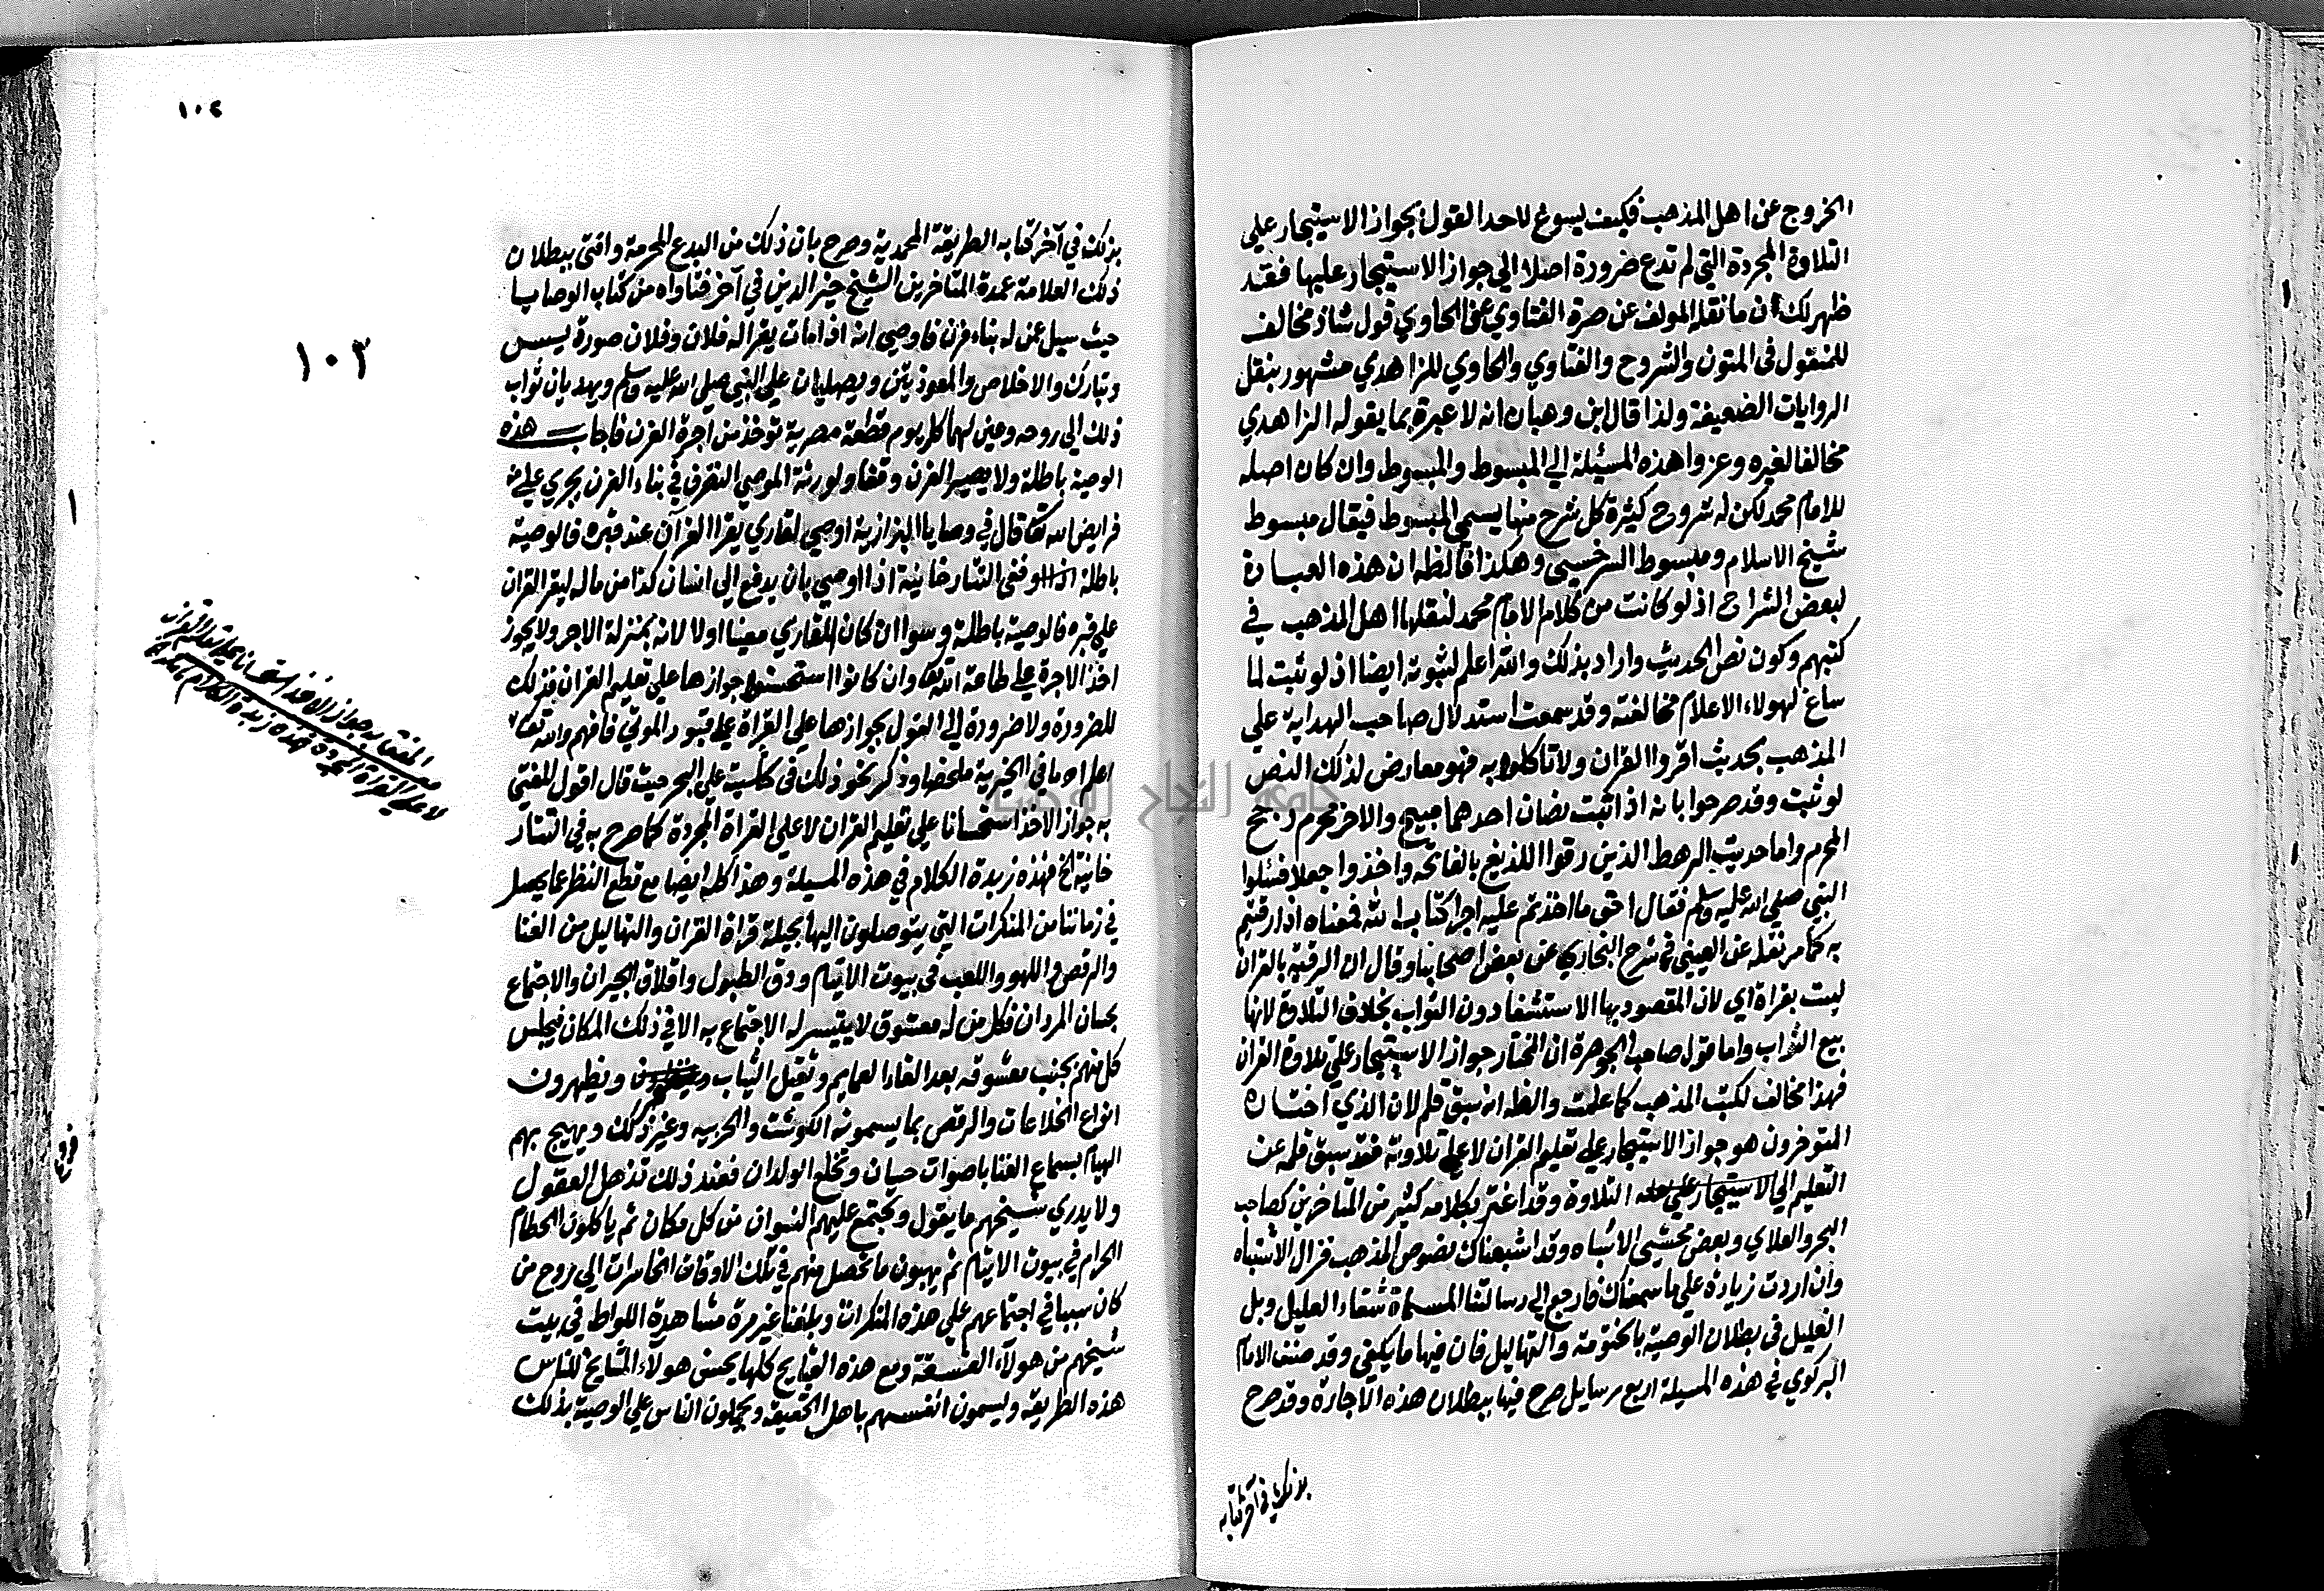 الخروج عن اهل المذهب فكيف يسوغ لاحد القول بجواز الاستيجار علي
التلاوة المجردة التي لم تدع ضرورة اصلا الي جواز الاستيجار عليها فقد
ظهر لك ان ما نقله المولف عن صرة الفتاوي عن الحاوي قول شاذ مخالف
للمنقول في المتون والشروح والفتاوي والحاوي للزاهدي مشهور بنقل
الروايات الضعيفة ولذا قال ابن وهبان انه لا عبرة بما يقوله الزاهدي
مخالفا لغيره وعزوا هذه المسئلة الي المبسوط والمبسوط وان كان اصله
للامام محمد لكن له شروح كثيرة كل شرح منها يسمي المبسوط فيقال مبسوط
شيخ الاسلام ومبسوط السرخسي وهكذا فالظ ان هذه العبارة
لبعض الشراح اذ لو كانت من كلام الامام محمد لنقلها اهل المذهب في
كتبهم وكون نص الحديث واراد بذلك والله اعلم لثبوته ايضا اذ لو ثبت لما
ساغ لهولاء الاعلام مخالفته وقد سمعت استدلال صاحب الهداية علي
المذهب بحديث اقروا القران ولا تاكلوا به فهو معارض لذلك النص
لو ثبت وقد صرحوا بانه اذا ثبت نصان احدهما مبيح والاخر محرم رجح
المحرم واما حديث الرهط الذين رقوا اللذيغ بالفاتحة واخذوا جعلا فسئلوا
النبي صلي الله عليه وسلم فقال احق ما اخذتم عليه اجرا كتاب الله فمعناه اذا رقيتم
به كما مر نقله عن العيني في شرح البخاري عن بعض اصحابنا وقال ان الرقية بالقران
ليست بقراة اي لان المقصود بها الاستشفا دون الثواب بخلاف التلاوة لانها
بيع الثواب واما قول صاحب الجوهرة ان المختار جواز الاستيجار علي تلاوة القران
فهذا مخالف لكتب المذهب كما علمت والظ انه سبق قلم لان الذي اختاره
المتوخرون هو جواز الاستيجار علي تعليم القران لا علي تلاوته فقد سبق قلمه عن
التعليم الي التلاوة وقد اغتر بكلامه كثير من المتاخرين كصاحب
البحر والعلاي وبعض محشيي الاشباه وقد اشبعناك نصوص المذهب فزال الاشتباه
وان اردت زيادة علي ما سمعناك فارجع الي رسالتنا المسماة شفاء العليل وبل
الغليل في بطلان الوصية بالختومة والتهاليل فان فيها ما يكفي وقد صنف الامام
البركوي في هذه المسيلة اربع رسايل صرح فيها ببطلان هذه الاجارة وقد صرح
بذلك في آخر كتابه
١٠٤
١٠٣
بذلك في آخر كتابه الطريقة المحمدية وصرح بان ذلك من البدع المحرمة وافتي ببطلان
ذلك العلامة عمدة المتاخرين الشيخ خير الدين في آخر فتاواه من كتاب الوصايا
حيث سيل عمن له بناء فرن فاوصي انه اذا مات يقرا له فلان وفلان صورة يسن
وتبارك والاخلاص والمعوذيتن ويصليان علي النبي صلي الله عليه وسلم ويهديان ثواب
ذلك الي روحه وعين لهما كل يوم قطعة مصرية توخذ من اجرة الفرن فاجاب هذه
الوصية باطلة ولا يصير الفرن وقفا ولورثة الموصي التصرف في بناء الفرن يجري علي
فرايض الله تعا قال في وصايا البزازية اوصي لقاري يقرا القرآن عند قبره فالوصية
باطلة وفي التتارخانية اذا اوصي بان يدفع الي انسان كذا من ماله ليقرا القران
علي قبره فالوصية باطلة وسوا ان كان القاري معينا اولا لانه بمنزلة الاجر ولا يجوز
اخذ الاجرة علي طاعة الله تعا وان كانوا استحسنوا جوازها علي تعليم القران فذلك
للضرورة ولا ضرورة الي القول بجوازها علي القراة علي قبور الموتي فافهم والله تعا
اعلم اه ما في الخيرية ملخصا وذكر نحو ذلك في حاشيته علي البحر حيث قال اقول المفتي
به جواز الاخذ استحسانا علي تعليم القران لا علي القراة المجردة كما صرح به في التتار
خانية الخ فهذه زبدة الكلام في هذه المسيلة وهذا كله ايضا مع قطع النظر عما يحصل
في زماننا من المنكرات التي يتوصلون اليها بحيلة قراة القران والتهاليل من الغنا
والرقص واللهو واللعب في بيوت الايتام ودق الطبول واقلاق الجيران والاجتماع
بحسان المردان فكل من له معشوق لا يتيسر له الاجتماع به الا في ذلك المكان فيجلس
كل منهم بجنب معشوقه بعد القاء العمايم وثقيل الثياب ويظهرون
انواع الخلاعات والرقص بما يسمونه الكوشت والحربيه وغير ذلك ويهيج بهم
الهيام بسماع الغنا باصوات حسان وتخلع الولدان فعند ذلك تذهل العقول
ولا يدري شيخهم ما يقول وتجتمع عليهم النسوان من كل مكان ثم ياكلون الحطام
الحرام في بيوت الايتام ثم يهبون ما تحصل منهم في تلك الاوقات الخاسرات الي روح من
كان سببا في اجتماعهم علي هذه المنكرات وبلغنا غير مرة مشاهدة اللواط في بيت
شيخهم من هولآء الفسقة ومع هذه القبايح كلها يحسن هولآء المشايخ للناس
هذه الطريقة ويسمون انفسهم باهل الحقيقة ويحملون الناس علي الوصية بذلك
المفتي به جواز الاخذ استحسانا علي تعليم القران
لا علي القراة المجردة فهذه زبدة الكلام